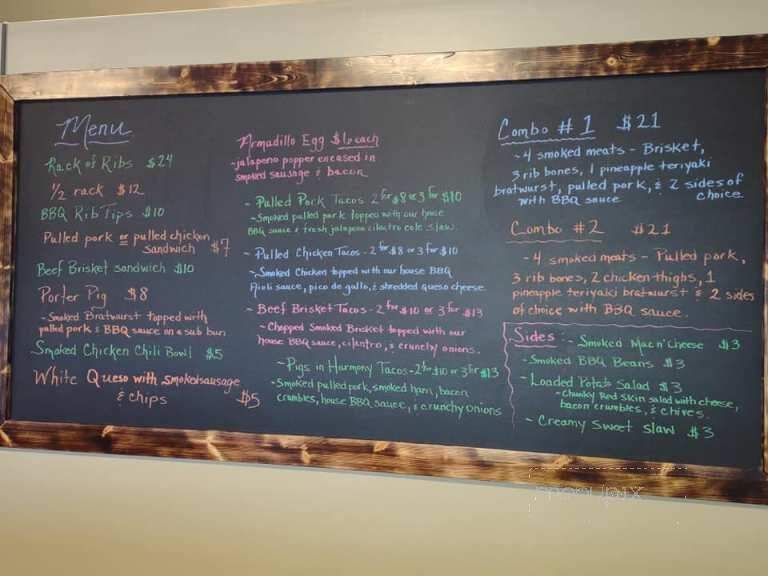 Menu
Rack of Ribs $24
1/2 rack $12
BBQ Rib Tips $10
Pulled pork or pulled chicken
sandwich $7
Beef Brisket sandwich $10
Porter Pig $8
- Smoked Bratwurst topped with
pulled pork & BBQ sauce on a sub bun
Smoked Chicken Chili Bowl $5
White Queso with smoked sausage
& chips $5
Armadillo Egg each
- jalapeno popper encased in
smoked sausage & bacon
- Pulled Pork Tacos 2 for $8 or 3 for $10
- Smoked pulled pork topped with our house
BBQ sauce & fresh jalapeno cilantro cole slaw
- Pulled Chicken Tacos - 2 for $8 or 3 for $10
- Smoked Chicken topped with our house BBQ
Aioli sauce, pico de gallo, & shredded queso cheese.
- Beef Brisket Tacos - 2 for $10 or 3 for $13
- Chopped Smoked Brisket topped with our
house BBQ sauce, cilantro, & crunchy onions.
- Pigs in Harmony Tacos - 2 for $10 or 3 for $13
- Smoked pulled pork, smoked ham, bacon
crumbles, house BBQ sauce, & crunchy onions
Combo # 1 $21
- 4 smoked meats - Brisket,
3 rib bones, 1 pineapple teriyaki
bratwurst, pulled pork, & 2 sides of
with BBQ sauce choice
Combo #2 $21
- 4 smoked meats - Pulled pork,
3 rib bones, 2 chicken thighs, 1
pineapple teriyaki bratwurst & 2 sides
of choice with BBQ sauce.
Sides - Smoked Mac n' Cheese $3
- Smoked BBQ Beans $3
- Loaded Potato Salad $3
- Chunky Red Skin salad with cheese,
bacon crumbles, & chives.
- Creamy Sweet slaw $3